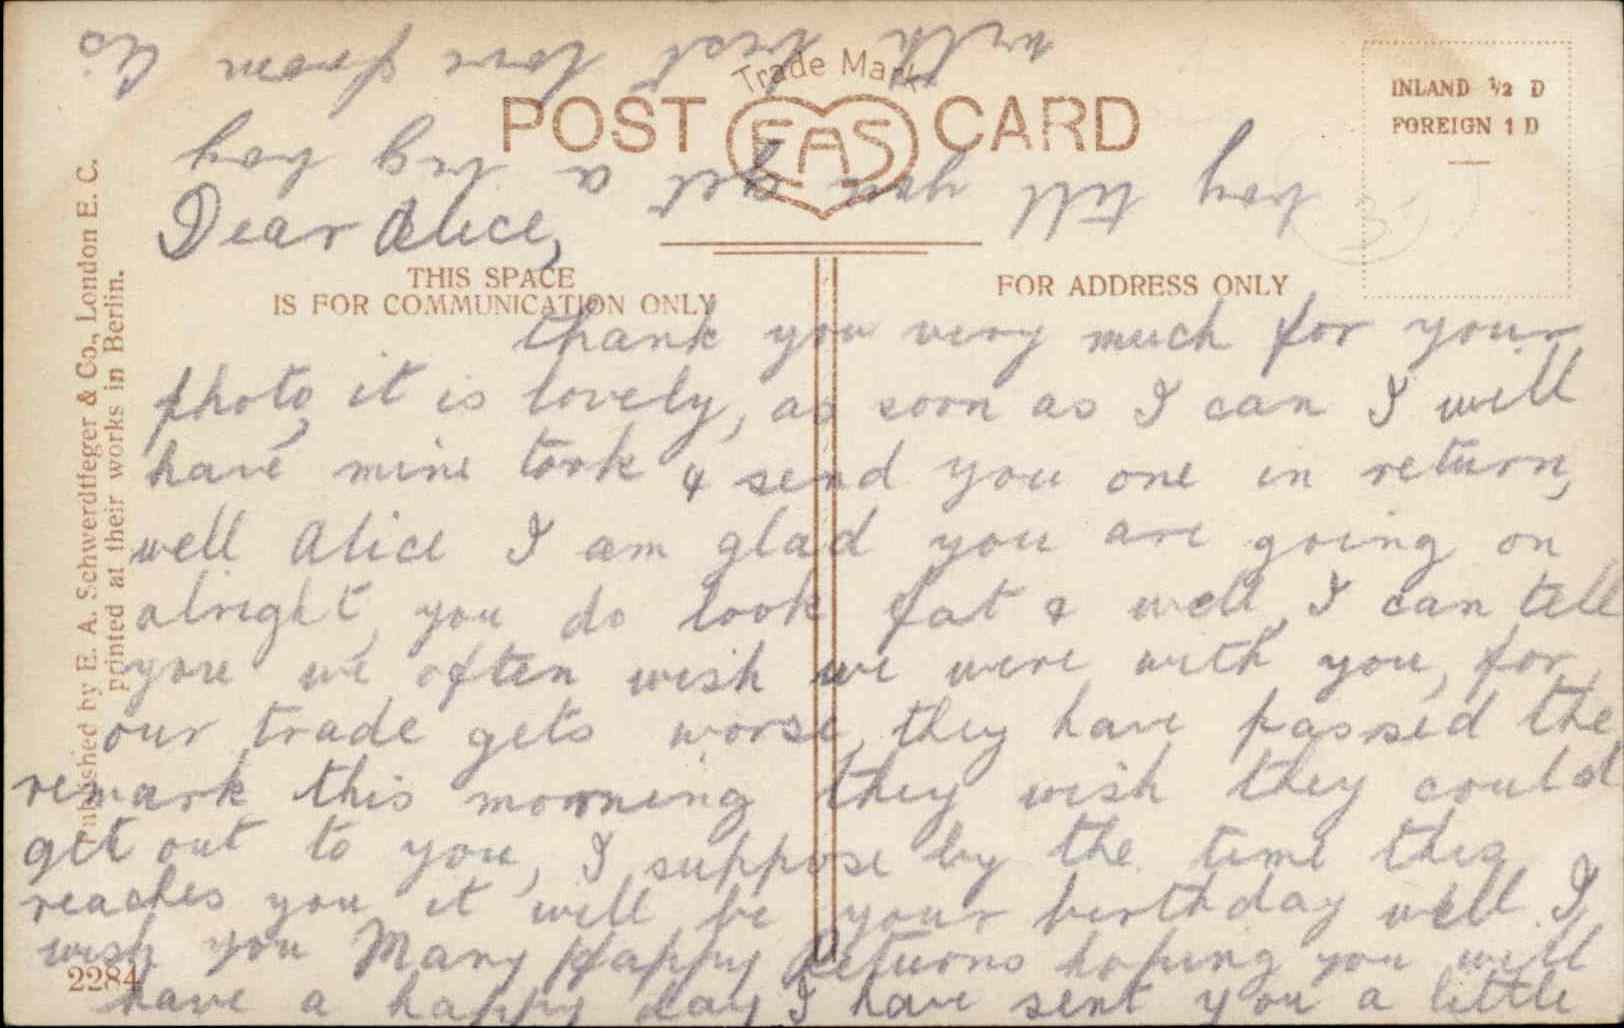 POST CARD
Trade Mark
EAS
INLAND ½ D
FOREIGN 1 D
THIS SPACE
IS FOR COMMUNICATION ONLY
FOR ADDRESS ONLY
Published by E. A. Schwerdtfeger & Co., London E. C.
printed at their works in Berlin.
2284
Dear Alice,
thank you very much for your
photo, it is lovely, as soon as I can I will
have mine took & send you one in return,
well Alice I am glad you are going on
alright, you do look fat & well, I can tell
you we often wish we were with you, for
our trade gets worse, they have passed the
remark this morning they wish they could
get out to you, I suppose by the time this
reaches you it will be your birthday well I
wish you Many Happy Returns hoping you will
have a happy day I have sent you a little
boy till you get a big boy
with best love from